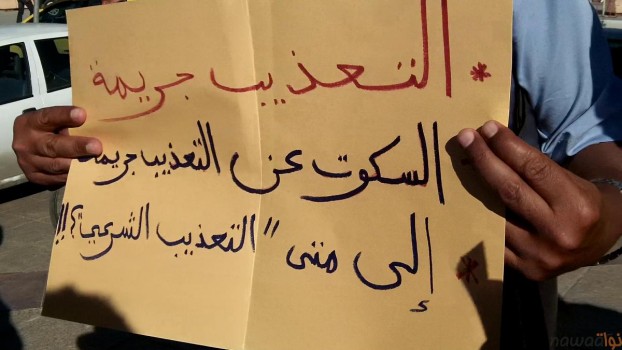 * التعذيب جريمة
السكوت عن التعذيب جريمة
* إلى متى "التعذيب الشرعي"؟!!
nawaaة نواة